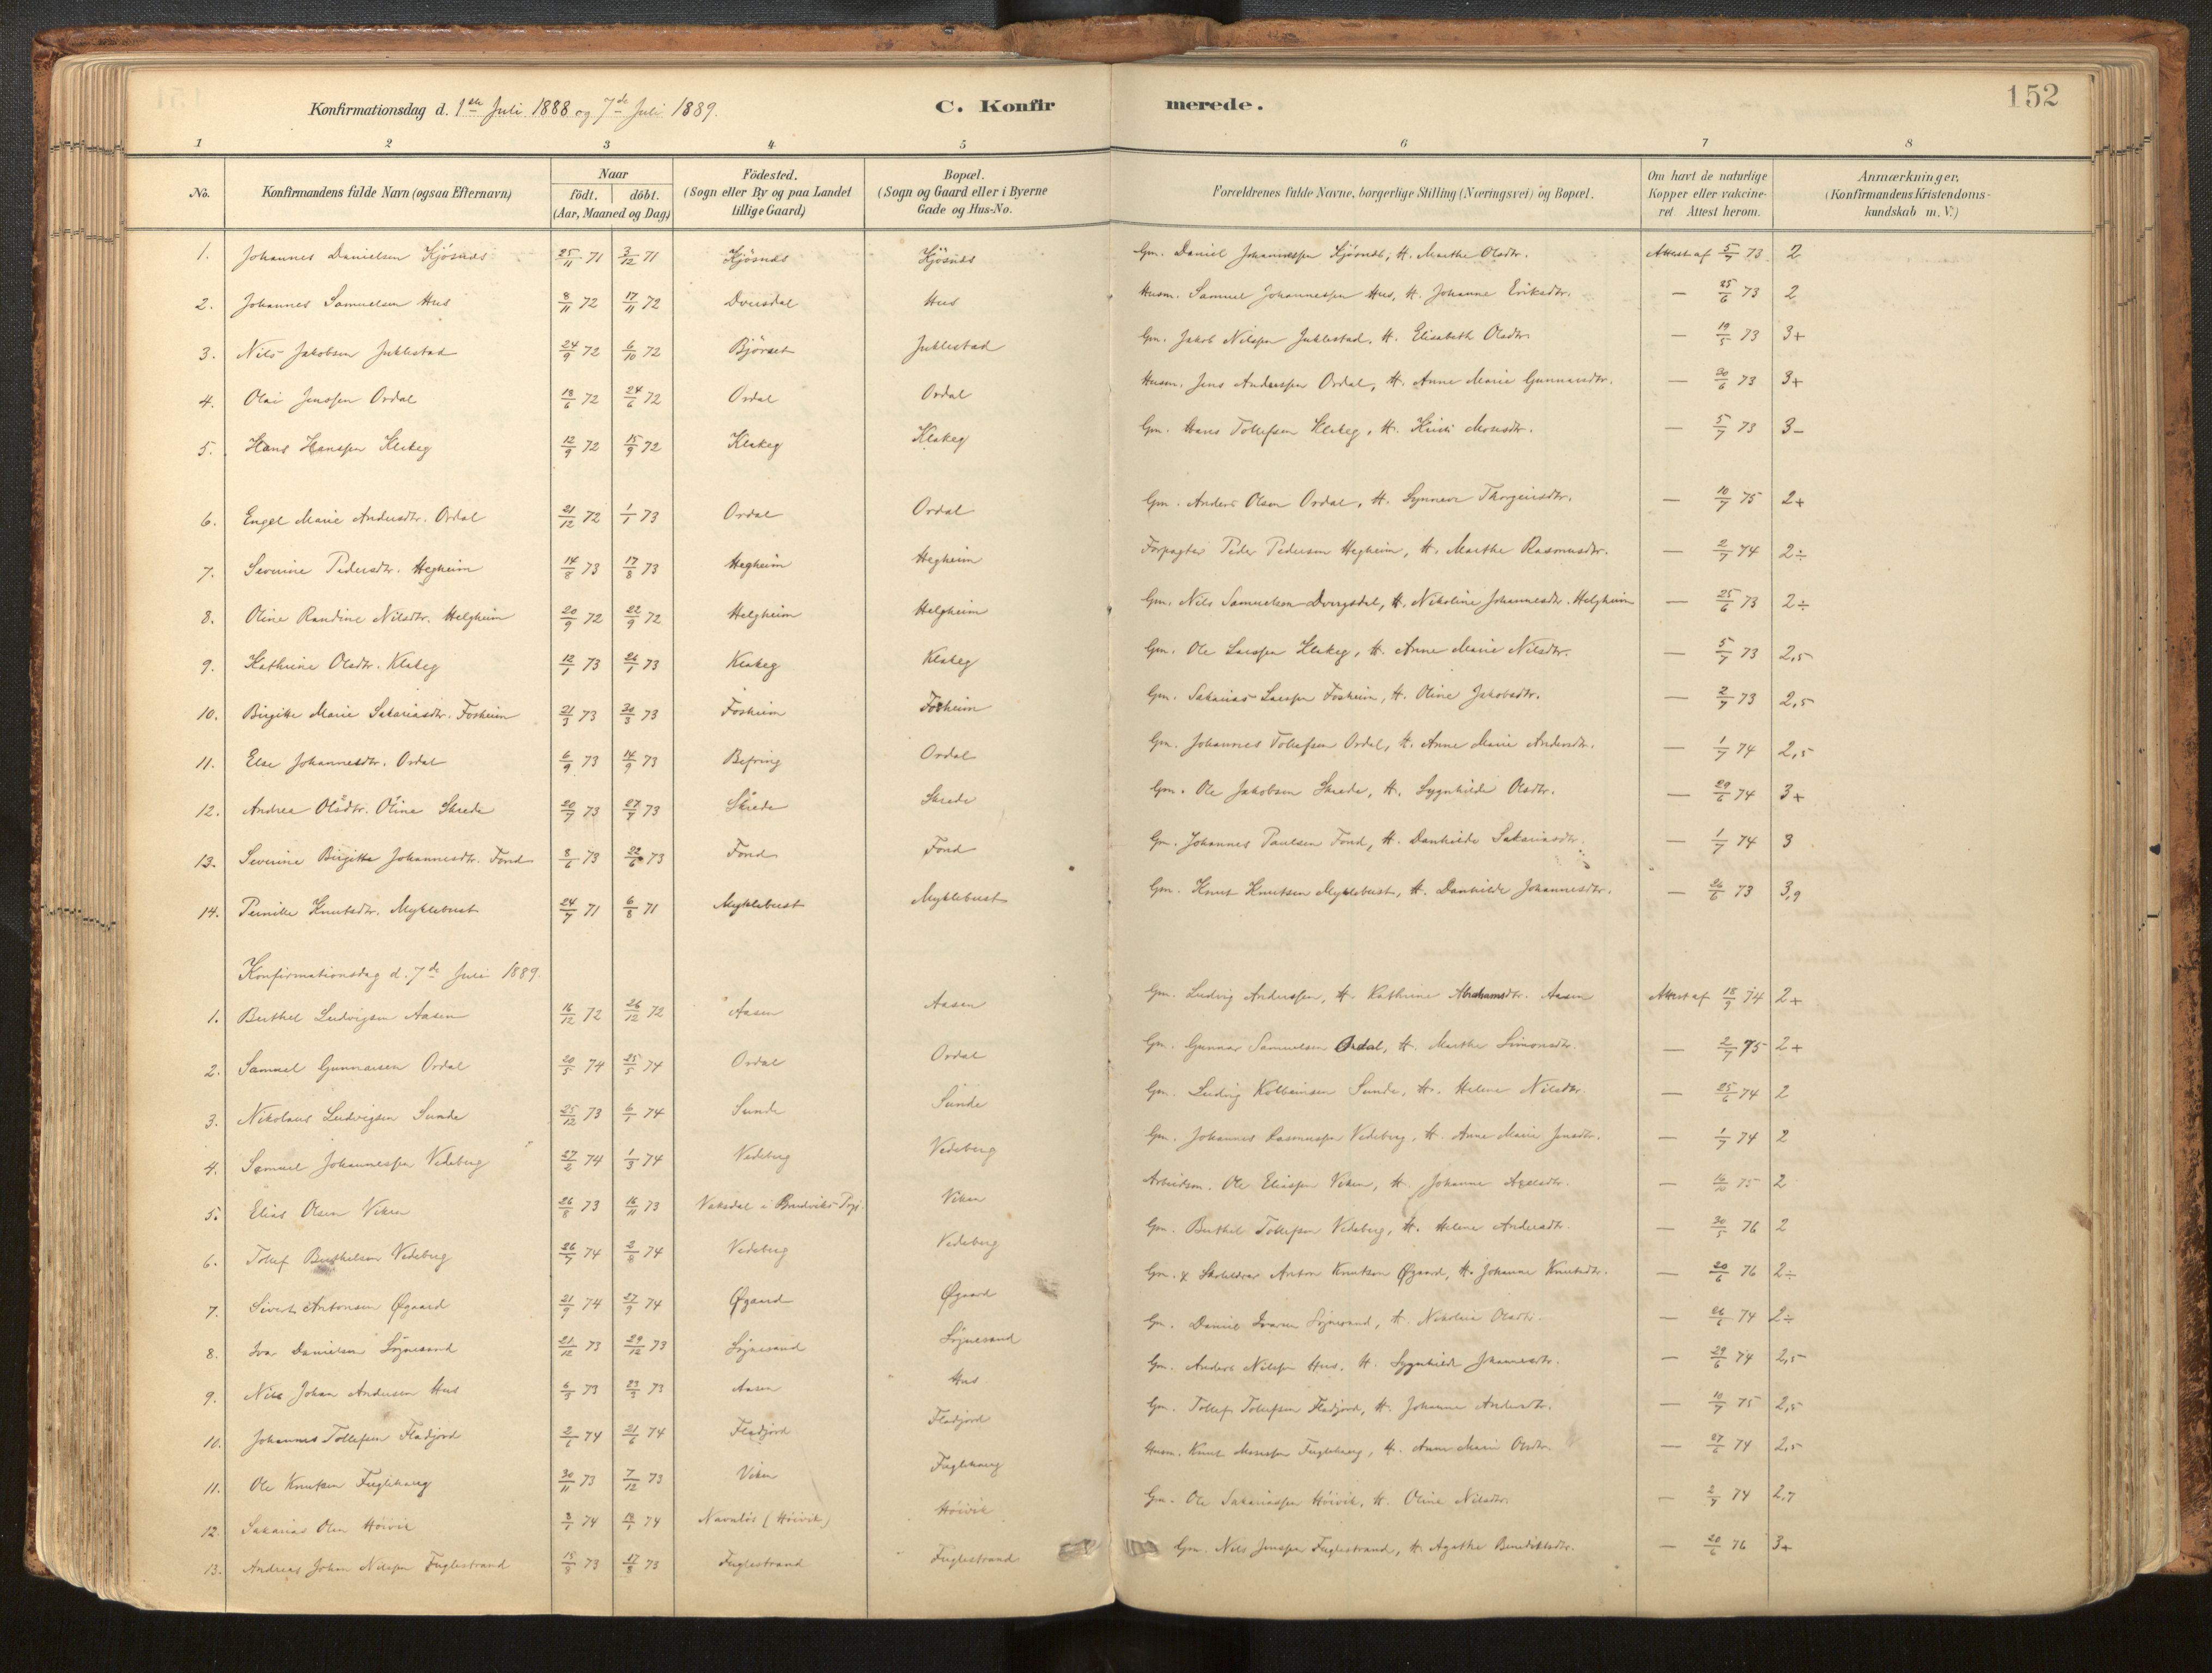 Konfirmationsdag d. 1ste Juli 1888 og 7de Juli 1889.
C. Konfirmerede.
152
1 2 3 4 5 6 7 8
No. Konfirmandens fulde Navn (ogsaa Efternavn) Naar født. døbt. (Aar, Maaned og Dag) Födested. (Sogn eller By og paa Landet tillige Gaard) Bopæl. (Sogn og Gaard eller i Byerne Gade og Hus-No. Forældrenes fulde Navne, borgerlige Stilling (Næringsvei) og Bopæl. Om havt de naturlige Kopper eller vakcineret. Attest herom. Anmærkninger, (Konfirmandens Kristendomskundskab m. V.)
1. Johannes Danielsen Kjösnæs 25/11 71 3/12 71 Kjösnæs Kjösnæs Gm. Daniel Johannessen Kjösnæs, H. Marthe Olsdtr. Attest af 5/7 73. 2
2. Johannes Samuelsen Hus 8/11 72 17/11 72 Dvergsdal Hus Husm. Samuel Johannessen Hus, H. Johanne Eriksdtr. — 25/6 73 2
3. Nils Jakobsen Juklestad 24/9 72 6/10 72 Björset Juklestad Gm. Jakob Nilssen Juklestad, H. Elisabeth Olsdtr. — 19/5 73 3+
4. Olai Jenssen Ordal 18/6 72 24/6 72 Ordal Ordal Husm. Jens Anderssen Ordal, H. Anne Marie Gunnarsdtr. — 30/6 73 3+
5. Hans Hanssen Klakeg 12/9 72 15/9 72 Klakeg Klakeg Gm. Hans Tollefsen Klakeg, H. Kristi Monsdtr. — 5/7 73 3-
6. Engel Marie Andersdtr. Ordal 21/12 72 1/1 73 Ordal Ordal Gm. Anders Olsen Ordal, H. Synneve Thorgeirsdtr. — 10/7 75 2+
7. Severine Pedersdtr. Hegheim 14/8 73 17/8 73 Hegheim Hegheim Forpagter Peder Pedersen Hegheim, H. Marthe Rasmusdtr. — 2/7 74 2÷
8. Oline Randine Nilsdtr. Helgheim 20/9 72 22/9 72 Helgheim Helgheim Gm. Nils Samuelsen Dvergsdal, H. Nikoline Johannesdtr. Helgheim — 25/6 73 2÷
9. Kathrine Olsdtr. Klakeg 12/1 73 26/1 73 Klakeg Klakeg Gm. Ole Larssen Klakeg, H. Anne Marie Nilsdtr. — 5/7 73 2,5
10. Birgitte Marie Sakariasdtr. Fosheim 21/3 73 30/3 73 Fosheim Fosheim Gm. Sakarias Larssen Fosheim, H. Oline Jakobsdtr. — 2/7 73 2,5
11. Else Johannesdtr. Ordal 6/9 73 14/9 73 Befring Ordal Gm. Johannes Tollefsen Ordal, H. Anne Marie Andersdtr. — 1/7 74 2,5
12. Andrea Olsdtr. Oline Skrede 20/7 73 27/7 73 Skrede Skrede Gm. Ole Jakobsen Skrede, H. Sygnhilde Olsdtr. — 29/6 74 3+
13. Severine Birgitte Johannesdtr. Fond 8/6 73 22/6 73 Fond Fond Gm. Johannes Paulsen Fond, H. Danhilde Sakariasdtr. — 1/7 74 3
14. Pernille Knutsdtr. Myklebust 24/7 71 6/8 71 Myklebust Myklebust Gm. Knut Knutsen Myklebust, H. Danhilde Johannesdtr. — 26/6 73 3,9
Konfirmationsdag d. 7de Juli 1889.
1. Berthel Ludvigsen Aasen 16/12 72 26/12 72 Aasen Aasen Gm. Ludvig Anderssen, H. Kathrine Abrahamsdtr. Aasen Attest af 18/9 74 2+
2. Samuel Gunnarsen Ordal 20/5 74 25/5 74 Ordal Ordal Gm. Gunnar Samuelsen Ordal, H. Marthe Simonsdtr. — 2/7 75 2+
3. Nikolaus Ludvigsen Sunde 25/12 73 6/1 74 Sunde Sunde Gm. Ludvig Kolbeinsen Sunde, H. Helene Nilsdtr. — 25/6 74 2
4. Samuel Johannessen Vedeberg 27/2 74 1/3 74 Vedeberg Vedeberg Gm. Johannes Rasmussen Vedeberg, H. Anne Marie Jensdtr. — 1/7 74 2
5. Elias Olsen Viken 26/8 73 16/11 73 Vaksdal i Bruviks Prgj. Viken Arbeidsm. Ole Eliassen Viken, H. Johanne Axelsdtr. — 16/10 75 2
6. Tollef Berthelsen Vedeberg 26/7 74 2/8 74 Vedeberg Vedeberg Gm. Berthel Tollefsen Vedeberg, H. Helene Andersdtr. — 30/5 76 2
7. Sivert Antonsen Øgaard 21/9 74 27/9 74 Øgaard Øgaard Gm. & Skolelærer Anton Knutsen Øgaard, H. Johanne Knutsdtr. — 20/6 76 2÷
8. Ivar Danielsen Sögnesand 21/12 73 29/12 73 Sögnesand Sögnesand Gm. Daniel Ivarsen Sögnesand, H. Nikolia Olsdtr. — 26/6 74 2÷
9. Nils Johan Andersen Hus 6/3 73 23/3 73 Aasen Hus Gm. Anders Nilssen Hus, H. Sygnhilde Johannesdtr. — 29/6 74 2,5
10. Johannes Tollefsen Fladjord 2/6 74 21/6 74 Fladjord Fladjord Gm. Tollef Tollefsen Fladjord, H. Johanne Andersdtr. — 10/7 75 2,5
11. Ole Knutsen Fuglehaug 30/11 73 7/12 73 Viken Fuglehaug Husm. Knut Monssen Fuglehaug, H. Anne Marie Olsdtr. — 27/6 74 2,5
12. Sakarias Olsen Höivik 8/1 74 18/1 74 Navnløs (Höivik) Höivik Gm. Ole Sakariassen Höivik, H. Oline Nilsdtr. — 2/7 74 2,7
13. Andreas Johan Nilssen Fuglestrand 15/8 73 17/8 73 Fuglestrand Fuglestrand Gm. Nils Jenssen Fuglestrand, H. Agathe Benediktsdtr. — 20/6 76 3+